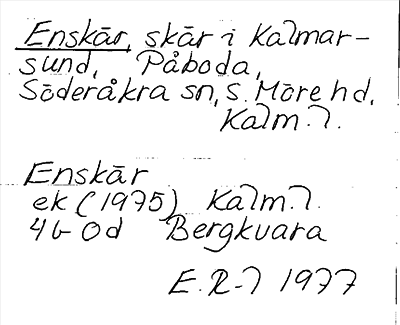 Enskär, skär i Kalmar-
sund, Påboda,
Söderåkra sn, S. Möre hd,
Kalm. l.
Enskär
ek (1975) Kalm. l.
4G 0d Bergkvara
E. R-l 1977